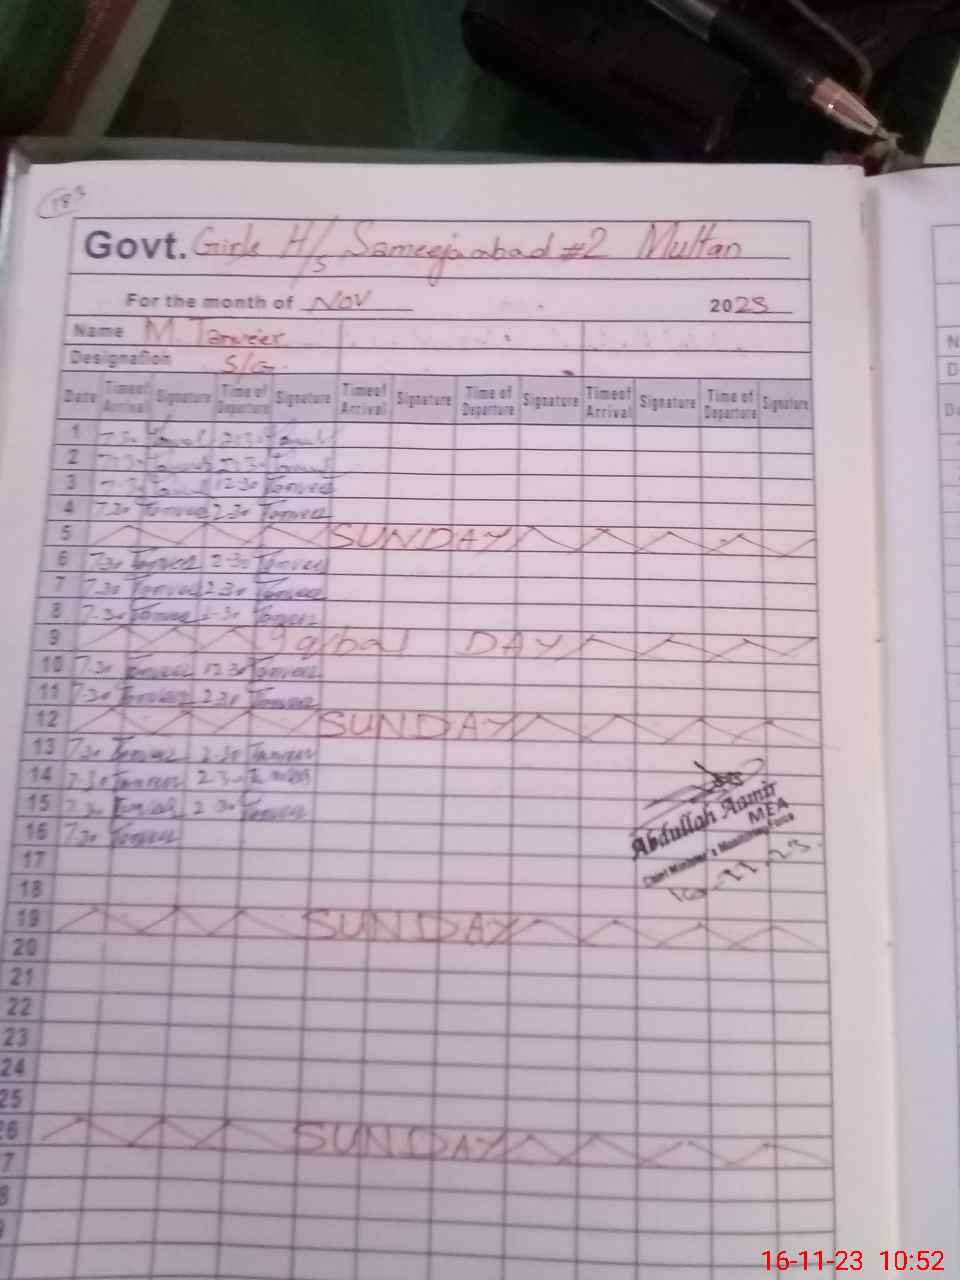 Govt. Girls H/S Sameejaabad #2 Multan
For the month of NOV 2023
Name M. Tanveer
Designation S/G
Date Time of Arrival Signature Time of Departure Signature Time of Arrival Signature Time of Departure Signature Time of Arrival Signature Time of Departure Signature
1 7.30 2:30
2 7:30 2:30
3 7.30 12:30 Tanveer
4 7.30 Tanveer 2.30 Tanveer
5 SUNDAY
6 7.30 Tanveer 2.30 Tanveer
7 7.30 Tanveer 2.30 Tanveer
8 7.30 Tanveer 2.30 Tanveer
9 Iqbal DAY
10 7.30 Tanveer 12.30 Tanveer
11 7.30 Tanveer 2.30 Tanveer
12 SUNDAY
13 7.30 Tanveer 2.30 Tanveer
14 7.30 Tanveer 2.30 Tanveer
15 7.30 Tanveer 2.30 Tanveer
16 7.30 Tanveer
Abdullah Aamir
MEA
Chief Minister's Monitoring Force
16-11-23
17
18
19 SUNDAY
20
21
22
23
24
25
26 SUNDAY
7
8
16-11-23 10:52